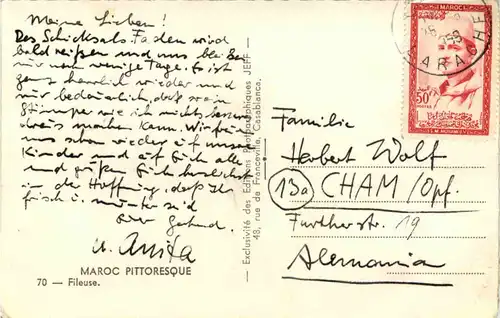 Meine Lieben!
Des Schicksals Faden wird
bald reißen und uns bleiben
nur noch wenige Tage. Es ist
ganz herrlich wieder und
nur bedauerlich, daß so ein
Stümper wie ich nichts besser
draus machen kann. Wir freuen
uns schon wieder auf unsere
Kinder und auf Euch alle
und grüßen Euch herzlichst
in der Hoffnung, daß Ihr
frisch u. munter seid
Euer
u. Anita
MAROC PITTORESQUE
70 — Fileuse.
— Exclusivité des Editions Photographiques JEFF —
48, rue de Franceville, Casablanca.
MAROC
50
LARACHE
Familie
Herbert Wolf
13a CHAM/Opf.
Further str. 19
Alemania